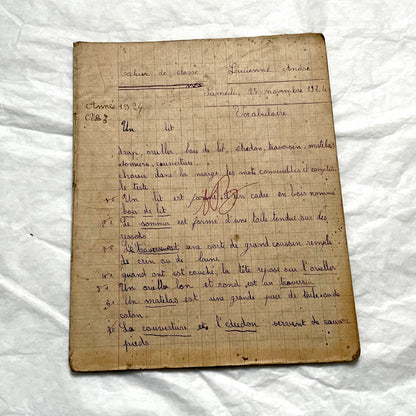 Cahier de classe Lucienne André
Samedi, 23 novembre 1924
Année 1924
Vocabulaire
Un lit
drap, oreiller, bois de lit, édredon, traversin, matelas
sommier, couverture.
choisir dans la marge les mots convenables et compléter
le texte
Un lit est formé d'un cadre en bois nommé
bois de lit.
Le sommier est formé d'une toile tendue sur des
ressorts
Le traversin est une sorte de grand coussin rempli
de crin ou de laine
quand ont est couché la tête repose sur l'oreiller
Un oreiller lon et rond est un traversin.
Un matelas est une grande pièce de toile ou de
coton.
La couverture et l'édredon servent de couvre
pieds